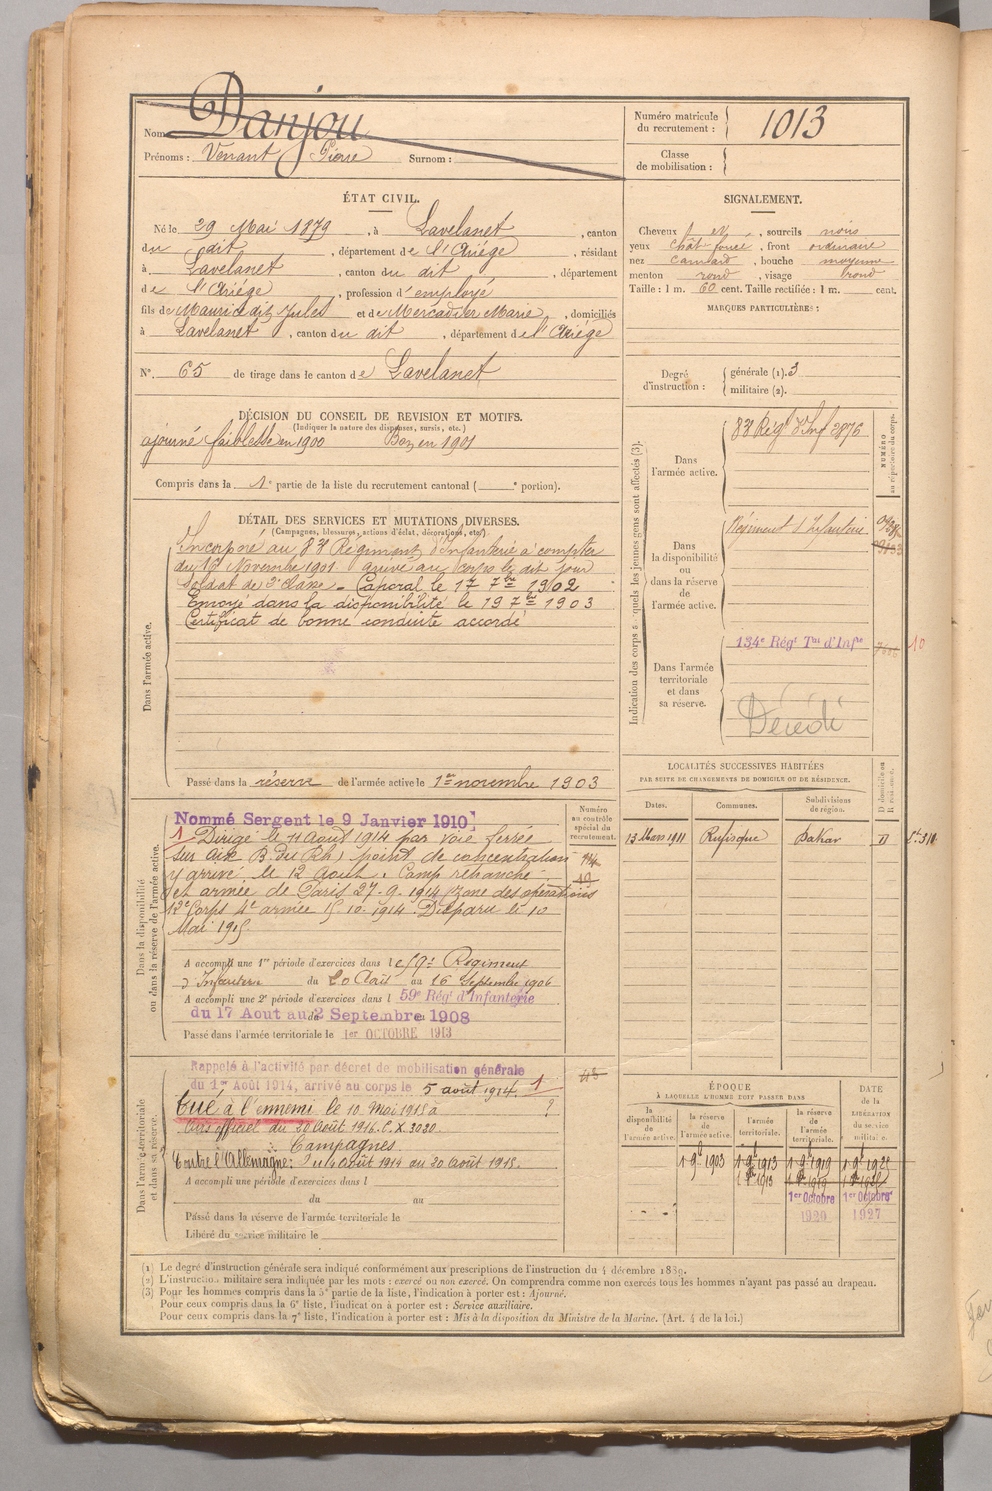 Nom Danjou
Prénoms : Venant Pierre Surnom :
Numéro matricule du recrutement : 1013
Classe de mobilisation :
ÉTAT CIVIL.
Né le 29 Mai 1879, à Lavelanet, canton
du dit, département de l'Ariége, résidant
à Lavelanet, canton du dit, département
de l'Ariége, profession d'employé
fils de Maurice dit Jules et de Mercadier Marie, domiciliés
à Lavelanet, canton du dit, département de l'Ariége
N° 65 de tirage dans le canton de Lavelanet
SIGNALEMENT.
Cheveux et, sourcils noirs
yeux chât foncé, front ordinaire
nez camard, bouche moyenne
menton rond, visage rond
Taille : 1 m. 60 cent. Taille rectifiée : 1 m. cent.
MARQUES PARTICULIÈRES :
Degré d'instruction : générale (1). 3
militaire (2).
DÉCISION DU CONSEIL DE REVISION ET MOTIFS.
(Indiquer la nature des dispenses, sursis, etc.)
ajourné faiblesse en 1900 Bon en 1901
Compris dans la 1e partie de la liste du recrutement cantonal ( e portion).
DÉTAIL DES SERVICES ET MUTATIONS DIVERSES.
(Campagnes, blessures, actions d'éclat, décorations, etc.)
Dans l'armée active.
Incorporé au 83e Régiment d'Infanterie à compter
du 16 Novembre 1901 arrivé au corps le dit jour
Soldat de 2e classe - Caporal le 17 7bre 1902
Envoyé dans la disponibilité le 19 7bre 1903
Certificat de bonne conduite accordé
Passé dans la réserve de l'armée active le 1er novembre 1903
Indication des corps auxquels les jeunes gens sont affectés (3).
NUMÉRO au répertoire du corps.
Dans l'armée active.
83e Rég d'Inf 2876
Dans la disponibilité ou dans la réserve de l'armée active.
Régiment d'Infanterie
Dans l'armée territoriale et dans sa réserve.
134e Régt Tal d'Infie
10
Décédé
LOCALITÉS SUCCESSIVES HABITÉES
PAR SUITE DE CHANGEMENTS DE DOMICILE OU DE RÉSIDENCE.
Dates. Communes. Subdivisions de région. D domicile ou R résidence.
13 Mars 1911 Rufisque Dakar D
Dans la disponibilité ou dans la réserve de l'armée active.
Numéro au contrôle spécial du recrutement.
Nommé Sergent le 9 Janvier 1910
1 Dirigé le 11 Août 1914 par voie ferrée
sur Aix B. du Rh, point de concentration
y arrivé le 12 Août. Camp retranché
et armée de Paris 27-9-1914 (zone des opérations
12e Corps 4e armée 15-10-1914. Disparu le 10
Mai 1915.
A accompli une 1re période d'exercices dans le 59e Régiment
d'Infanterie du 20 Août au 16 Septembre 1906
A accompli une 2e période d'exercices dans l 59e Régt d'Infanterie
du 17 Aout au 2 Septembre 1908
Passé dans l'armée territoriale le 1er OCTOBRE 1913
Dans l'armée territoriale et dans sa réserve.
Rappelé à l'activité par décret de mobilisation générale
du 1er Août 1914, arrivé au corps le 5 août 1914. 1
Tué à l'ennemi le 10 Mai 1915 à ?
Avis officiel du 20 Août 1916. C.X. 3030.
Campagnes
Contre l'Allemagne: du 4 Août 1914 au 20 Août 1915.
A accompli une période d'exercices dans l
du au
Passé dans la réserve de l'armée territoriale le
Libéré du service militaire le
ÉPOQUE
A LAQUELLE L'HOMME DOIT PASSER DANS
DATE DE LA LIBÉRATION du service militaire.
la disponibilité de l'armée active. la réserve de l'armée active. l'armée territoriale. la réserve de l'armée territoriale.
1 9bre 1903 1 9bre 1913 1 9bre 1919
1er Octobre 1920 1er Octobre 1927
(1) Le degré d'instruction générale sera indiqué conformément aux prescriptions de l'instruction du 4 décembre 1889.
(2) L'instruction militaire sera indiquée par les mots : exercé ou non exercé. On comprendra comme non exercés tous les hommes n'ayant pas passé au drapeau.
(3) Pour les hommes compris dans la 5e partie de la liste, l'indication à porter est : Ajourné.
Pour ceux compris dans la 6e liste, l'indication à porter est : Service auxiliaire.
Pour ceux compris dans la 7e liste, l'indication à porter est : Mis à la disposition du Ministre de la Marine. (Art. 4 de la loi.)